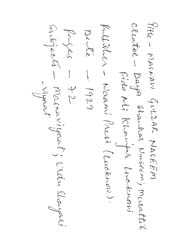 Title - MASNAVI GULZAR NASEEM
Creator - Daya Shankar Naseem; Murattib
Fida Ali Khanjar Lucknowi
Publisher - Naami Press (Lucknow).
Date - 1929
Pages - 72
Subjects - Masnaviyaat; Urdu Shayari
- Masnaviyaat